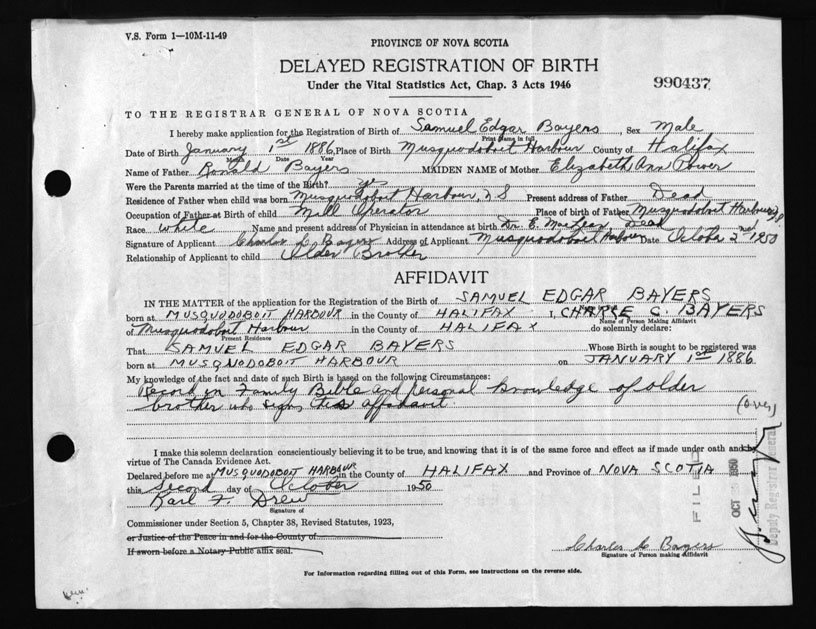 V.S. Form 1—10M-11-49
PROVINCE OF NOVA SCOTIA
DELAYED REGISTRATION OF BIRTH
Under the Vital Statistics Act, Chap. 3 Acts 1946
990437
TO THE REGISTRAR GENERAL OF NOVA SCOTIA
I hereby make application for the Registration of Birth of Samuel Edgar Bayers, Sex Male
Print Name in full
Date of Birth January 1st 1886, Place of Birth Musquodoboit Harbour County of Halifax
Month Date Year
Name of Father Ronald Bayers MAIDEN NAME of Mother Elizabeth Ann Power
Were the Parents married at the time of the Birth? yes
Residence of Father when child was born Musquodoboit Harbour, N S Present address of Father Dead
Occupation of Father at Birth of child Mill Operator Place of birth of Father Musquodoboit Harbour
Race White Name and present address of Physician in attendance at birth Dr. E. McLean, Dead
Signature of Applicant Charles C Bayers Address of Applicant Musquodoboit Harbour Date October 2nd 1950
Relationship of Applicant to child Older Brother
AFFIDAVIT
IN THE MATTER of the application for the Registration of the Birth of SAMUEL EDGAR BAYERS
born at MUSQUODOBOIT HARBOUR in the County of HALIFAX I, C. BAYERS
Name of Person Making Affidavit
of Musquodoboit Harbour in the County of HALIFAX do solemnly declare:
Present Residence
That SAMUEL EDGAR BAYERS Whose Birth is sought to be registered was
born at MUSQUODOBOIT HARBOUR on JANUARY 1st 1886
My knowledge of the fact and date of such Birth is based on the following Circumstances:
Record in Family Bible and personal knowledge of older
brother who signs this affidavit.
(over)
I make this solemn declaration conscientiously believing it to be true, and knowing that it is of the same force and effect as if made under oath and by
virtue of The Canada Evidence Act.
Declared before me at MUSQUODOBOIT HARBOUR in the County of HALIFAX and Province of NOVA SCOTIA
this second day of October 1950
Karl F. Drew
Signature of
Commissioner under Section 5, Chapter 38, Revised Statutes, 1923,
or Justice of the Peace in and for the County of
If sworn before a Notary Public affix seal.
Charles C Bayers
Signature of Person making Affidavit
FILED
OCT 1950
Deputy Registrar General
For Information regarding filling out of this Form, see instructions on the reverse side.